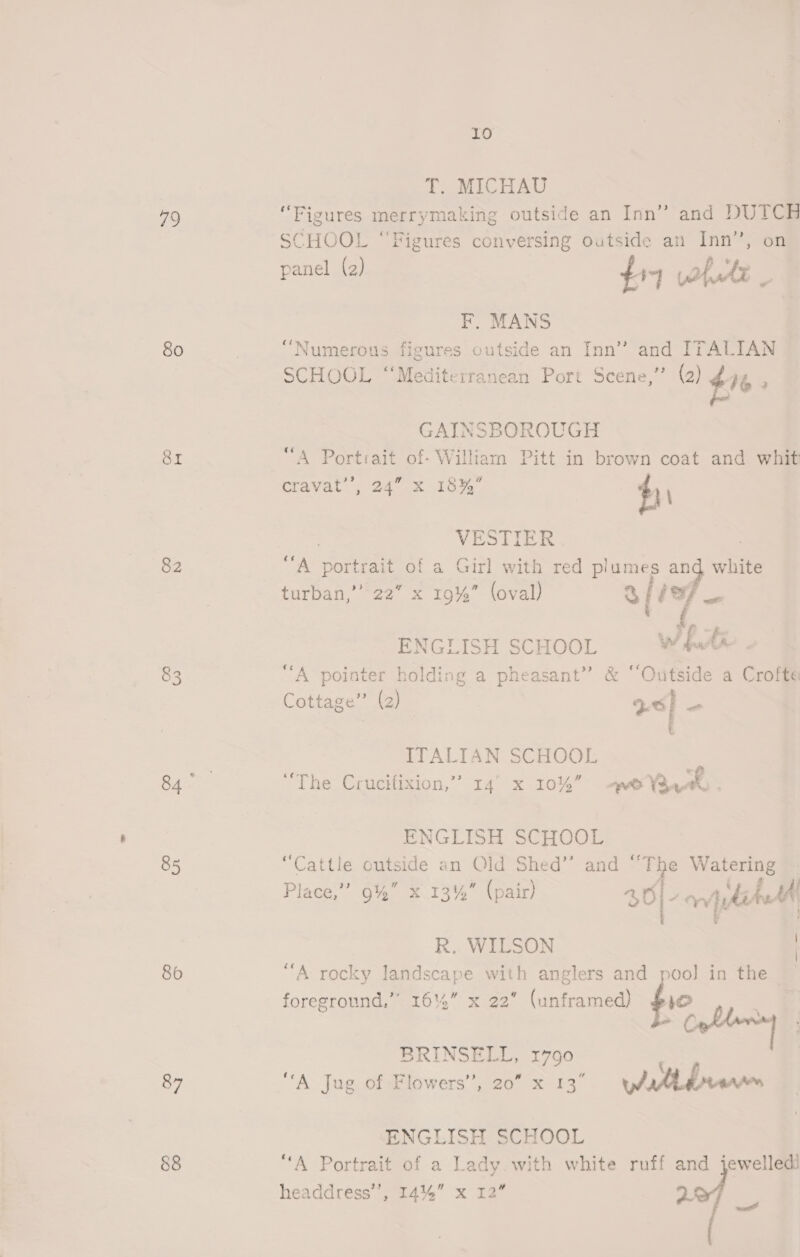 10
T. MICHAU
79 “Figures merrymaking outside an Inn” and DUTCH
SCHOOL “Figures conversing outside an Inn”, on
panel (2) £19 white -
F. MANS
80 “Numerous figures outside an Inn” and ITALIAN
SCHOOL “Mediterranean Port Scene,” (2) £16
GAINSBOROUGH
81 “A Portrait of William Pitt in brown coat and whit
cravat”, 24" x 18¾" £11
VESTIER
82 “A portrait of a Girl with red plumes and white
turban,” 22" x 19½" (oval)
ENGLISH SCHOOL White
83 “A pointer holding a pheasant” & “Outside a Crofte
Cottage” (2) 26/-
ITALIAN SCHOOL
84 “The Crucifixion,” 14" x 10½" no
ENGLISH SCHOOL
85 “Cattle outside an Old Shed” and “The Watering
Place,” 9½" x 13½" (pair) 30/-
R. WILSON
86 “A rocky landscape with anglers and pool in the
foreground,” 16½" x 22" (unframed) £10
BRINSELL, 1790
87 “A Jug of Flowers”, 20" x 13" Withdrawn
ENGLISH SCHOOL
88 “A Portrait of a Lady with white ruff and jewelled
headdress”, 14½" x 12" 20/-